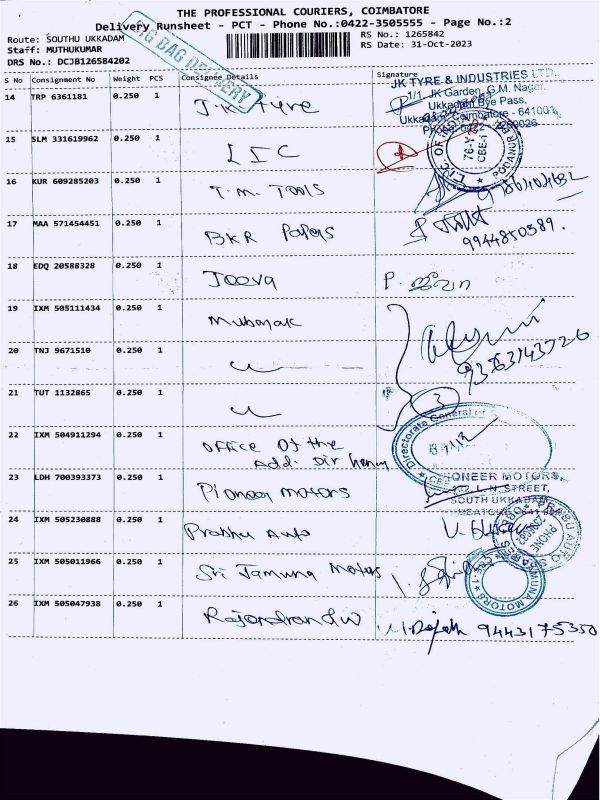 THE PROFESSIONAL COURIERS, COIMBATORE
Delivery Runsheet - PCT - Phone No.:0422-3505555 - Page No.:2
Route: SOUTHU UKKADAM
RS No.: 1265842
Staff: MUTHUKUMAR
RS Date: 31-Oct-2023
DRS No.: DCJB126584202
BIG BAG DELIVERY
S No Consignment No Weight PCS Consignee Details Signature
14 TRP 6361181 0.250 1 J.K Tyre
JK TYRE & INDUSTRIES LTD.,
1/1, JK Garden, G.M. Nagar,
Ukkadam Bye Pass,
Coimbatore - 641001
15 SLM 331619962 0.250 1 LIC
16 KUR 609285203 0.250 1 T.M. TOOLS
17 MAA 571454451 0.250 1 BKR Papers
9944850589.
18 EDQ 20588328 0.250 1 Jeeva P. ஜீவா
19 IXM 505111434 0.250 1 Mubarak
9363143726
20 TNJ 9671510 0.250 1
21 TUT 1132865 0.250 1
3
22 IXM 504911294 0.250 1 OFFICE Of the
Add. Dir
Directorate General of
23 LDH 700393373 0.250 1 Pioneer motors
PIONEER MOTORS,
L.N. STREET,
SOUTH UKKADAM
24 IXM 505230888 0.250 1 Prabhu Auto
25 IXM 505011966 0.250 1 Sri Jamuna Motors
JAMUNA MOTORS
26 IXM 505047938 0.250 1
9443175350